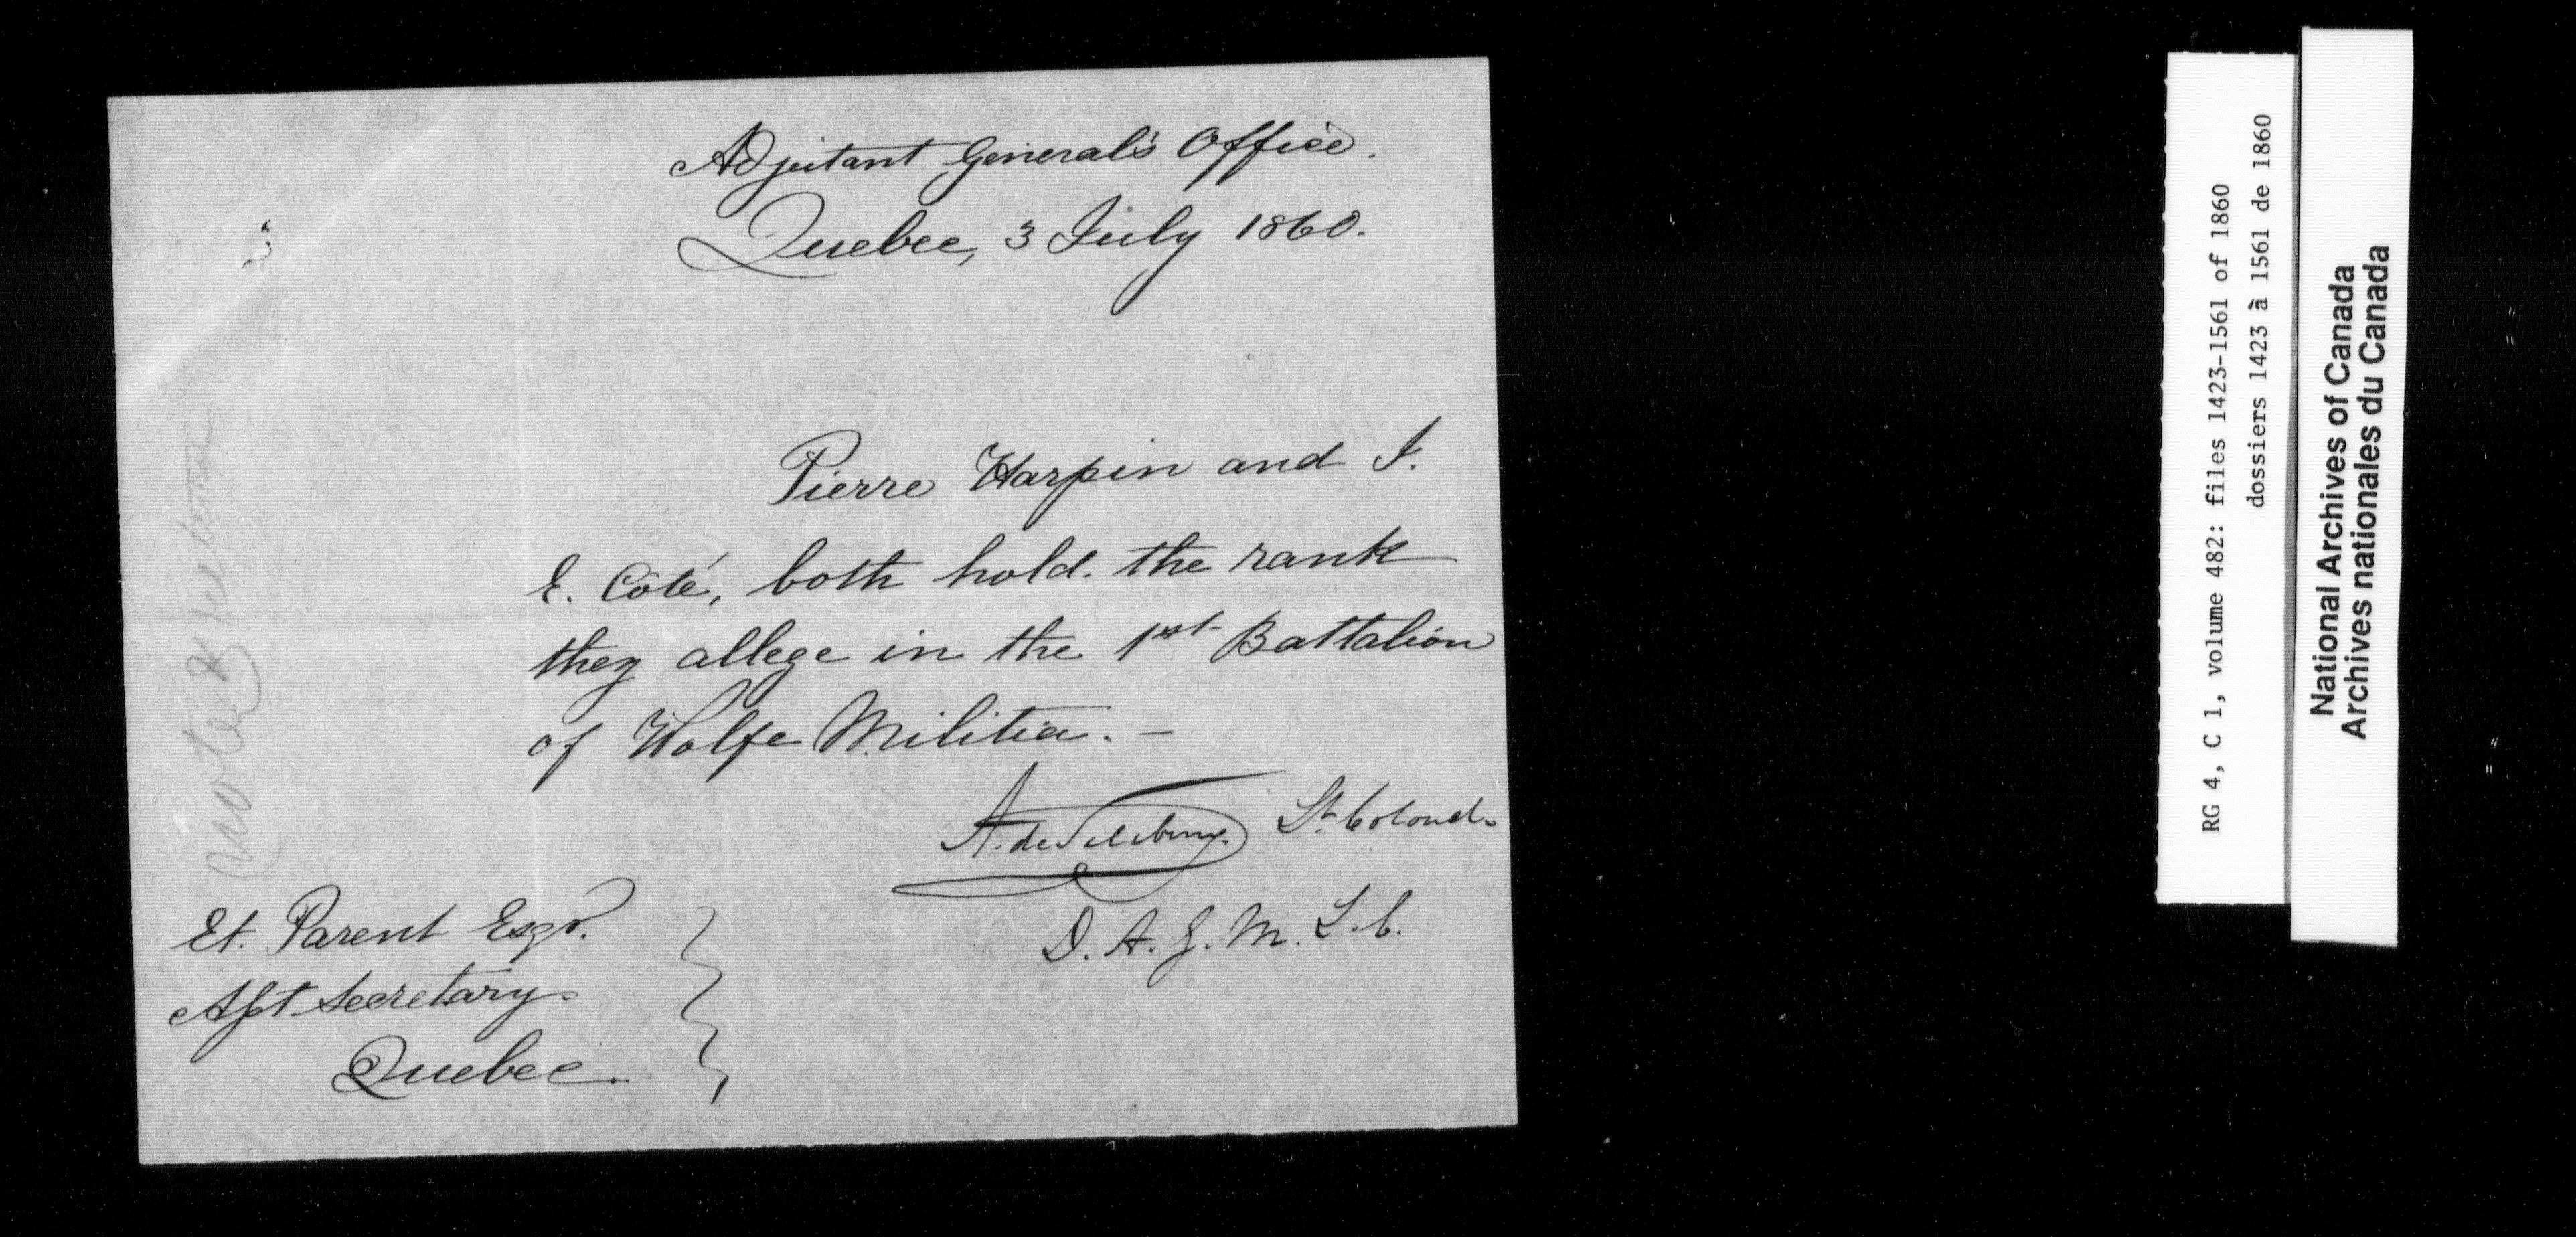 Adjutant General's Office.
Quebec, 3 July 1860.
Pierre Harpin and J.
E. Coté, both hold. the rank
they allege in the 1st Battalion
of Wolfe Militia. —
A. de Salaberry. Lt. Colonel.
D. A. G. M. L. C.
Et. Parent Esqr.
Asst. Secretary.
Quebec.
RG 4, C 1, volume 482: files 1423-1561 of 1860
dossiers 1423 à 1561 de 1860
National Archives of Canada
Archives nationales du Canada